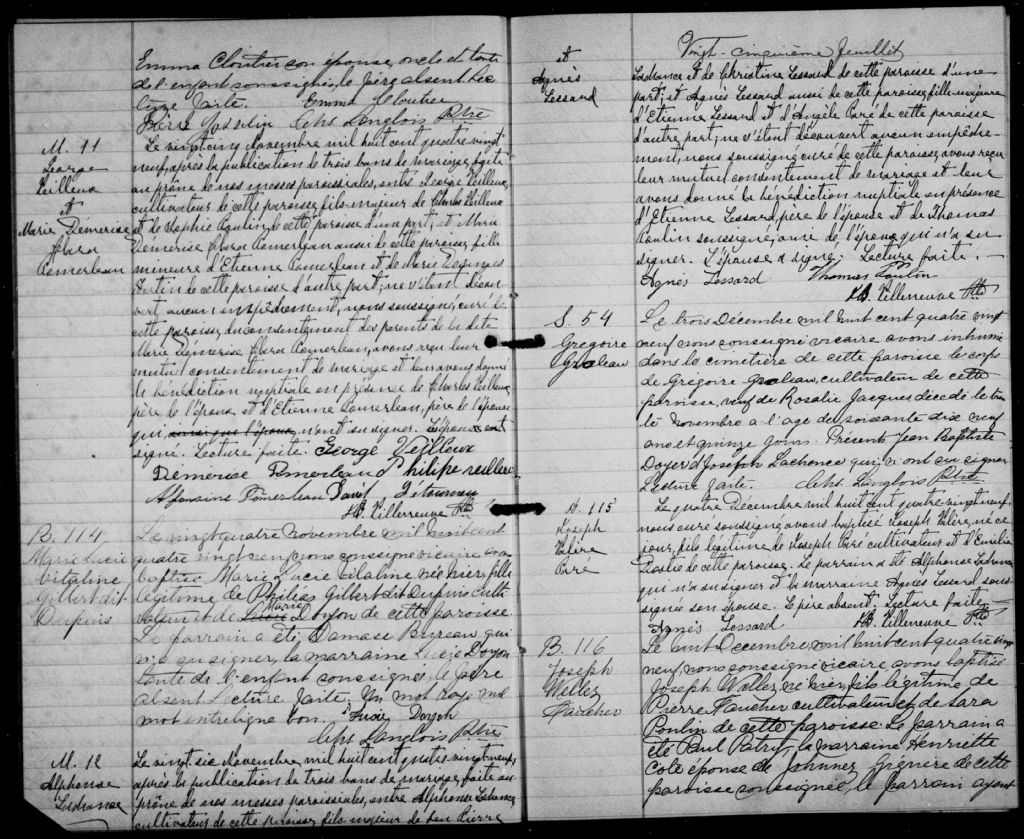 Emma Cloutier son épouse, oncle et tante
de l'enfant soussignés, le père absent Lec
ture faite. Emma Cloutier
Pierre Josselin Chs Langlois Ptre
M. 11
George
Veilleux
et
Marie Démerise
Clara
Pomerleau
Le vingt cinq Novembre mil huit cent quatre vingt
neuf, après la publication de trois bans de mariage, faite
au prône de nos messes paroissiales, entre George Veilleux,
cultivateur de cette paroisse, fils majeur de Charles Veilleux
et de Sophie Poulin, de cette paroisse d'une part; et Marie
Démerise Clara Pomerleau aussi de cette paroisse, fille
mineure d'Etienne Pomerleau et de Marie Desanges
Fortin de cette paroisse d'autre part; ne s'étant décou-
vert aucun empêchement, nous soussigné, curé de
cette paroisse, du consentement des parents de la dite
Marie Démerise Clara Pomerleau, avons reçu leur
mutuel consentement de mariage et leur avons donné
la bénédiction nuptiale en présence de Charles Veilleux,
père de l'époux et d'Etienne Pomerleau, père de l'épouse
qui, ainsi que l'époux, n'ont su signer. L'épouse ont
signé. Lecture faite. George Veilleux
Démerise Pomerleau Philipe veilleux
Alphonsine Pomerleau David Létourneau
J.B. Villeneuve Ptre
B. 114
Marie Lucie
Vitaline
Gilbert dit
Dupuis
Le vingt quatre novembre mil huit cent
quatre vingt neuf nous soussigné vicaire avons
baptisé Marie Lucie Vitaline née hier, fille
légitime de Philias Gilbert dit Dupuis Culti-
vateur et de Lucie Marie Doyon de cette paroisse.
Le parrain a été Damase Bureau qui
n'a su signer, la marraine Lucie Doyon
tante de l'enfant soussignée, le père
absent lecture faite, Un mot rayé nul
mot entreligne bon. Lucie Doyon
Chs Langlois Ptre
M. 12
Alphonse
Lachance
Le vingt six Novembre, mil huit cent quatre vingt neuf,
après la publication de trois bans de mariage, faite au
prône de nos messes paroissiales, entre Alphonse Lachance,
cultivateur de cette paroisse, fils majeur de feu Pierre
Vingt-cinquième feuillet
et
Agnès
Lessard
Lachance et de Christine Lessard de cette paroisse d'une
part; et Agnès Lessard aussi de cette paroisse, fille majeure
d'Etienne Lessard et d'Angèle Paré de cette paroisse
d'autre part; ne s'étant découvert aucun empêche-
ment, nous soussigné curé de cette paroisse, avons reçu
leur mutuel consentement de mariage et leur
avons donné la bénédiction nuptiale en présence
d'Etienne Lessard, père de l'épouse et de Thomas
Poulin soussigné, ami de l'époux qui n'a su
signer. L'épouse a signé. Lecture faite.
Agnès Lessard Thomas Poulin
J.B. Villeneuve Ptre
S. 54
Grégoire
Groleau
Le trois Décembre mil huit cent quatre vingt
neuf nous soussigné vicaire avons inhumé
dans le cimetière de cette paroisse le corps
de Grégoire Groleau, cultivateur de cette
paroisse, veuf de Rosalie Jacques décédé le tren
te Novembre a l'age de soixante dix neuf
ans et quinze jours. Présent Jean Baptiste
Doyer et Joseph Lachance qui n'ont su signer
Lecture faite. Chs Langlois Ptre
B. 115
Joseph
Valère
Paré
Le quatre Décembre mil huit cent quatre vingt neuf,
nous curé soussigné avons baptisé Joseph Valère, né ce
jour, fils légitime de Joseph Paré cultivateur et d'Emilie
de cette paroisse. Le parrain a été Alphonse Lachance
qui n'a su signer et la marraine Agnès Lessard sous-
signée son épouse. Le père absent. Lecture faite.
Agnès Lessard J.B. Villeneuve Ptre
B. 116
Joseph
Wellez
Faucher
Le huit Decembre, mil huit cent quatre vingt
neuf, nous soussigné vicaire avons baptisé
Joseph Wellez, né hier, fils légitime de
Pierre Faucher cultivateur et de Sara
Poulin de cette paroisse. Le parrain a
été Paul Patry, la marraine Henriette
Cote épouse de Johnney Grenière de cette
paroisse soussignée, le parrain ayant